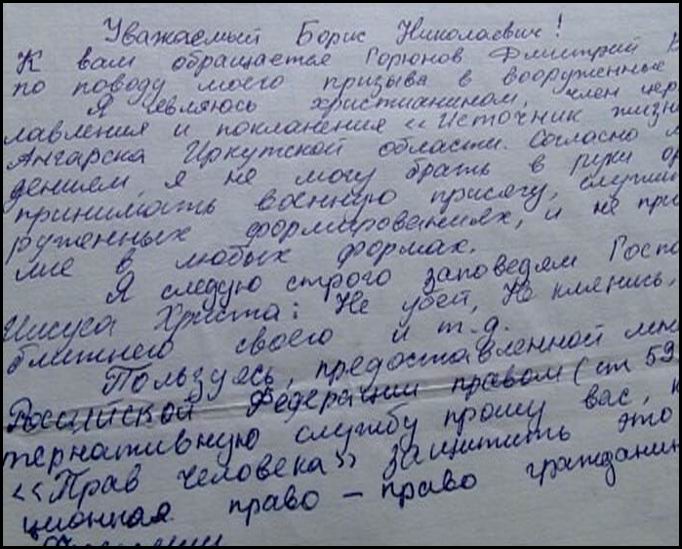 Уважаемый Борис Николаевич!
К вам обращается Горюнов Дмитрий
по поводу моего призыва в вооруженные
Я являюсь христианином, член цер
лавления и поклонения «Источник жизн
Ангарска Иркутской области. Согласно
дением, я не могу брать в руки ор
принимать военную присягу, служи
руженных формированиях, и не при
лие в любых формах.
Я следую строго заповедям Госпо
Иисуса Христа: Не убей, Не клянись,
ближнего своего и т.д.
Пользуясь, предоставленной мне
Российской Федерации правом (ст 59
тернативную службу прошу вас,
«Прав человека» защитить это
ционная право – право граждани